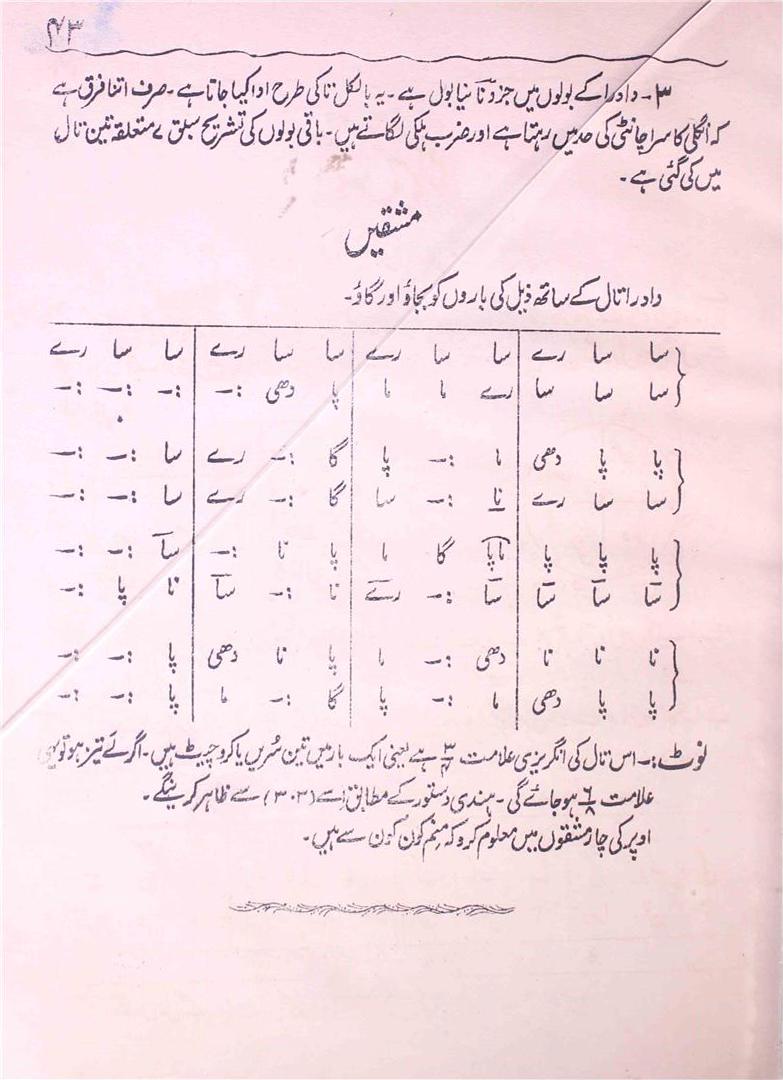 ۴۳
۳- دادرا کے بولوں میں جزو نَا نیا بول ہے ۔ یہ بالکل نا کی طرح ادا کیا جاتا ہے ۔ صرف اتنا فرق ہے
کہ انگلی کا سرا چانٹی کی حد میں رہتا ہے اور ضرب ہلکی لگاتے ہیں ۔ باقی بولوں کی تشریح سبق ۷ متعلقہ تین تال
میں کی گئی ہے ۔
مشقیں
دادرا تال کے ساتھ ذیل کی باروں کو بجاؤ اور گاؤ ۔
سا سا رے | سا سا رے | سا سا رے | سا سا رے
سا سا سا | رے ما ما | پا دھی :- | :- :- :-
پا پا دھی | ما :- پا | گا :- رے | سا :- :-
سا سا رے | نا :- سا | گا :- رے | سا :- :-
پا پا پا | ماپا گا ما | پا نا :- | سآ :- :-
سآ سآ سآ | سآ :- رےٓ | نا :- سآ | نا پا :-
نا نا نا | دھی :- ما | پا نا دھی | پا :- :-
پا پا دھی | ما :- پا | گا :- ما | پا :- :-
نوٹ :- اس تال کی انگریزی علامت ۳/۴ ہے یعنی ایک بار میں تین سُریں یا کروچیٹ ہیں ۔ اگر لَے تیز ہو تو یہی
علامت ۶/۸ ہو جائے گی ۔ ہندی دستور کے مطابق اِسے (۳۰۳) سے ظاہر کرینگے ۔
اوپر کی چار مشقوں میں معلوم کرو کہ سَم کون کون سے ہیں ۔